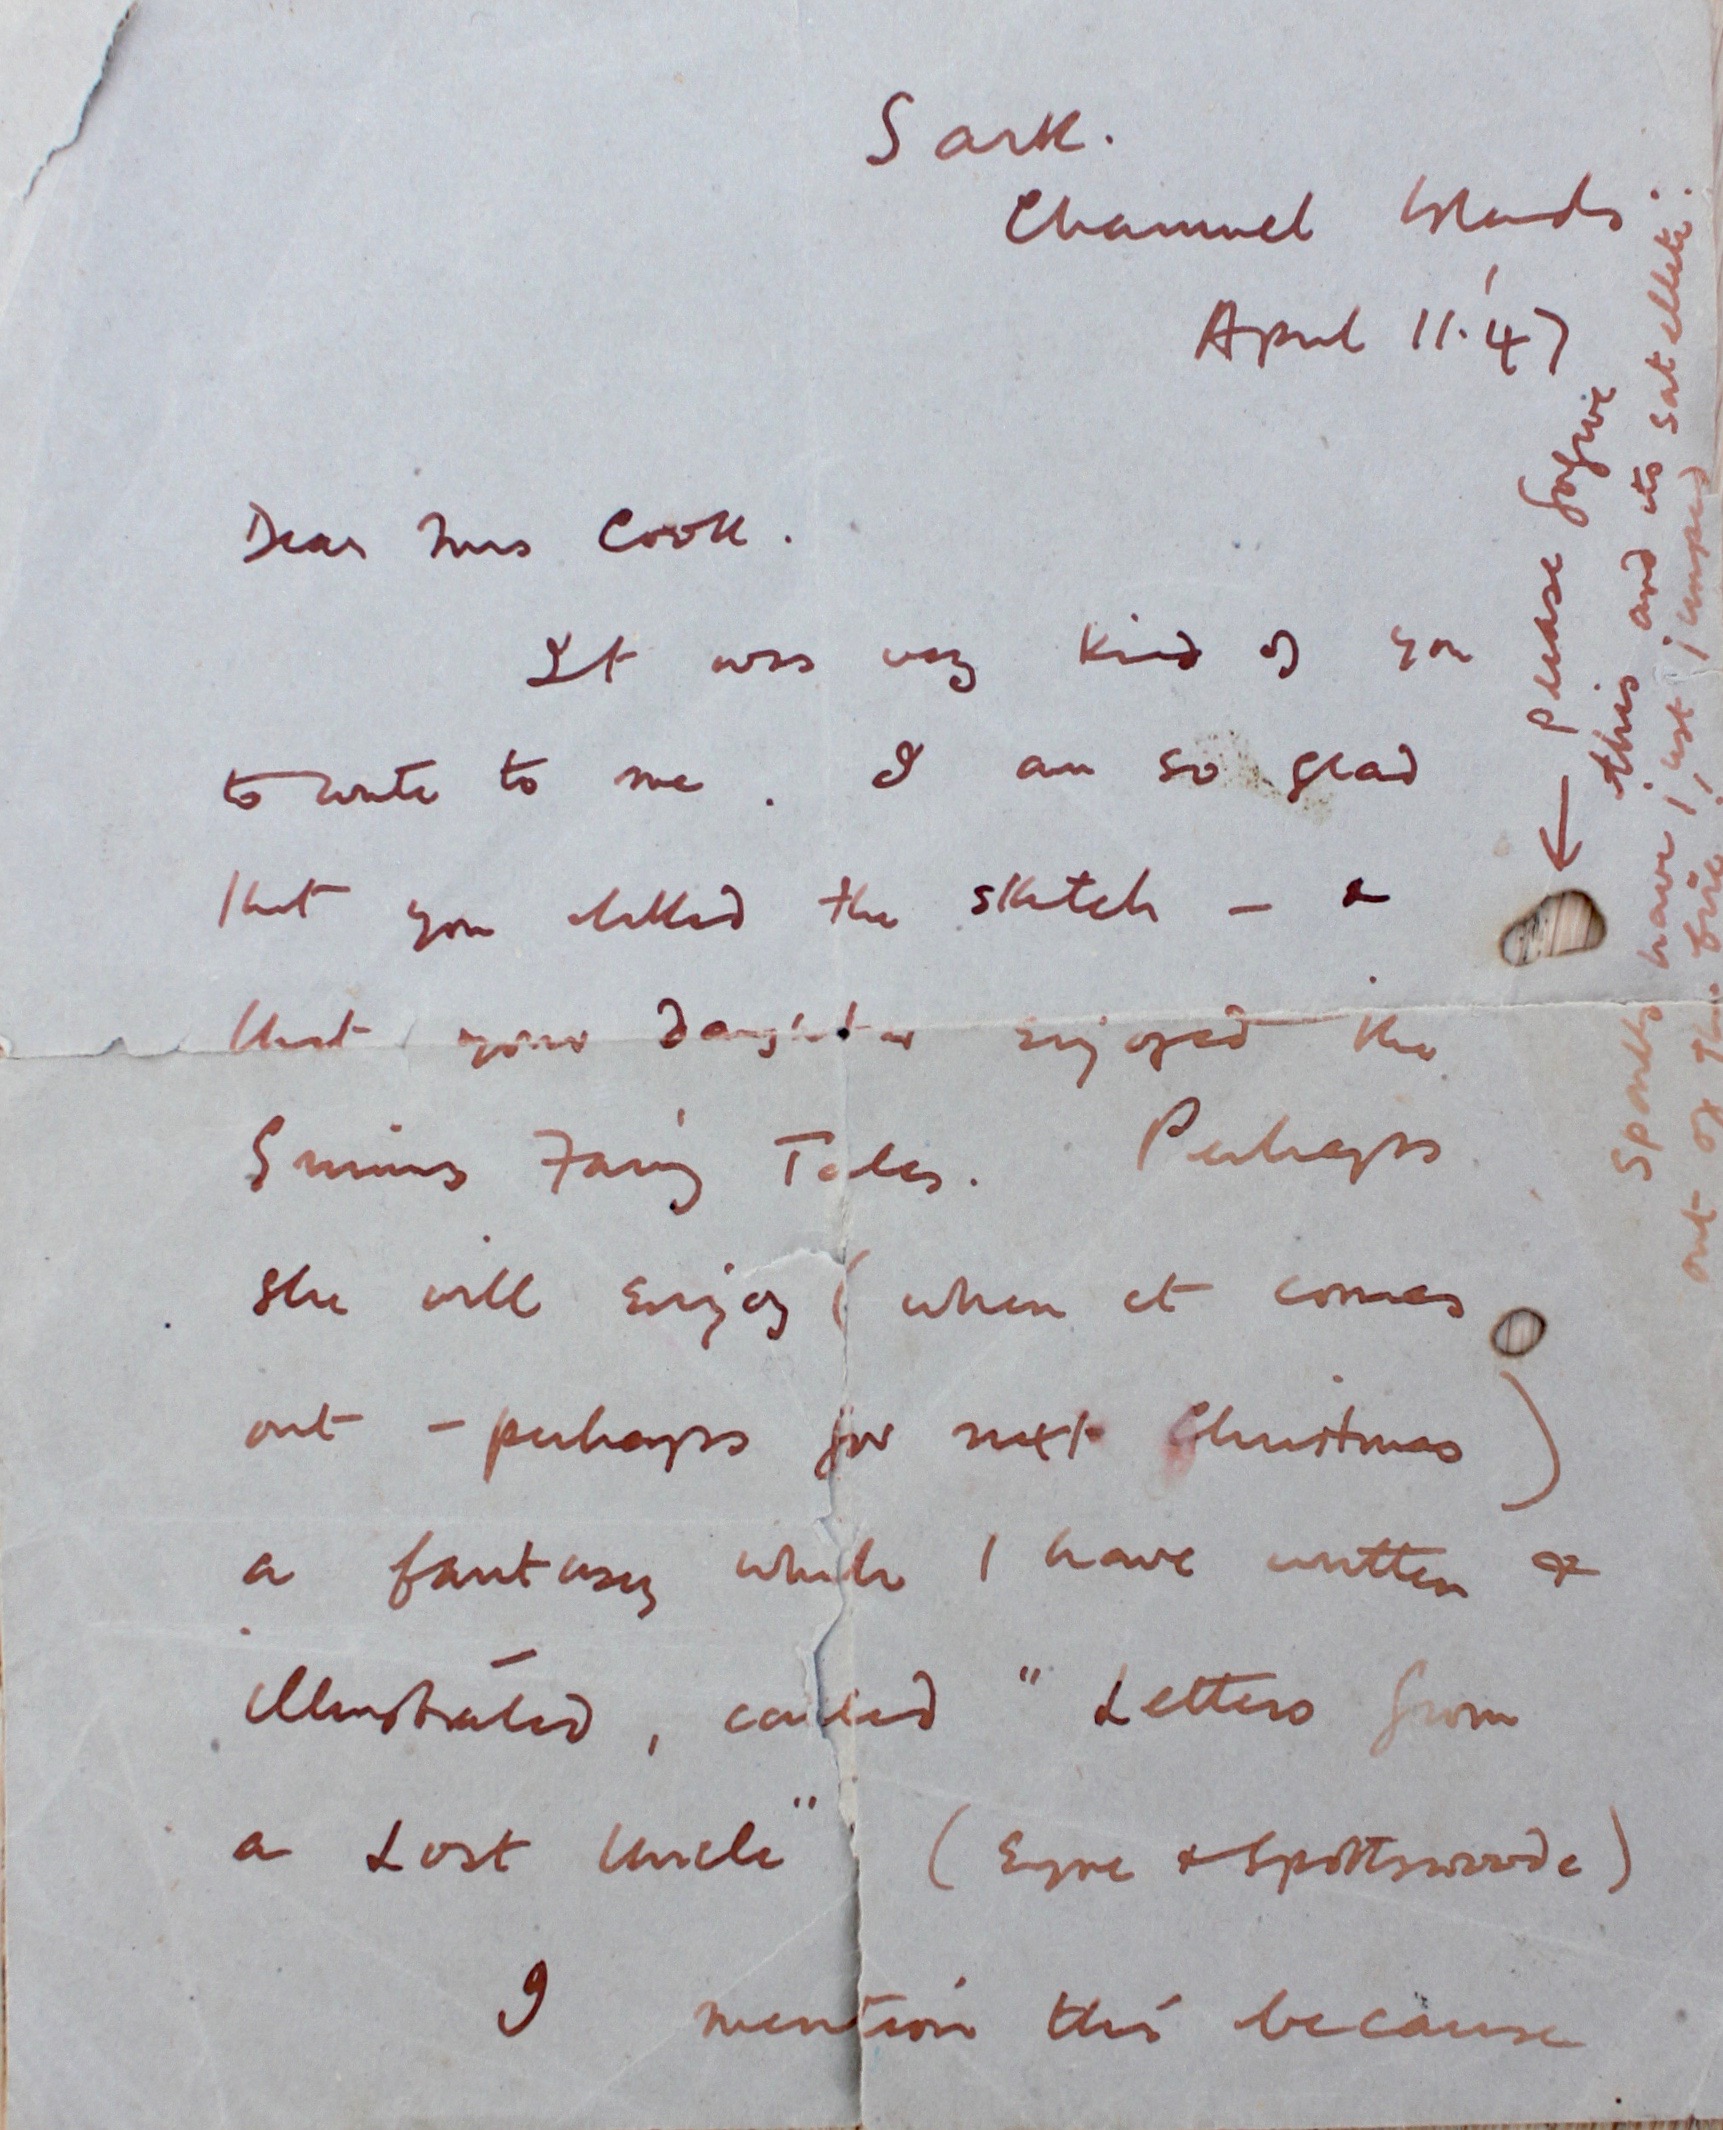 Sark.
Channel Islands.
April 11. 47
Dear Mrs Cook.
It was very kind of you
to write to me. I am so glad
that you likked the sketch – &
that your daughter enjoyed the
Grimms Fairy Tales. Perhaps
she will enjoy (when it comes
out – perhaps for next Christmas)
a fantasy which I have written &
illustrated, called "Letters from
a Lost Uncle" (Eyre & Spottswoode)
I mention this because
← please forgive
this and its satellite.
Sparks have just jumped
out of the fire.